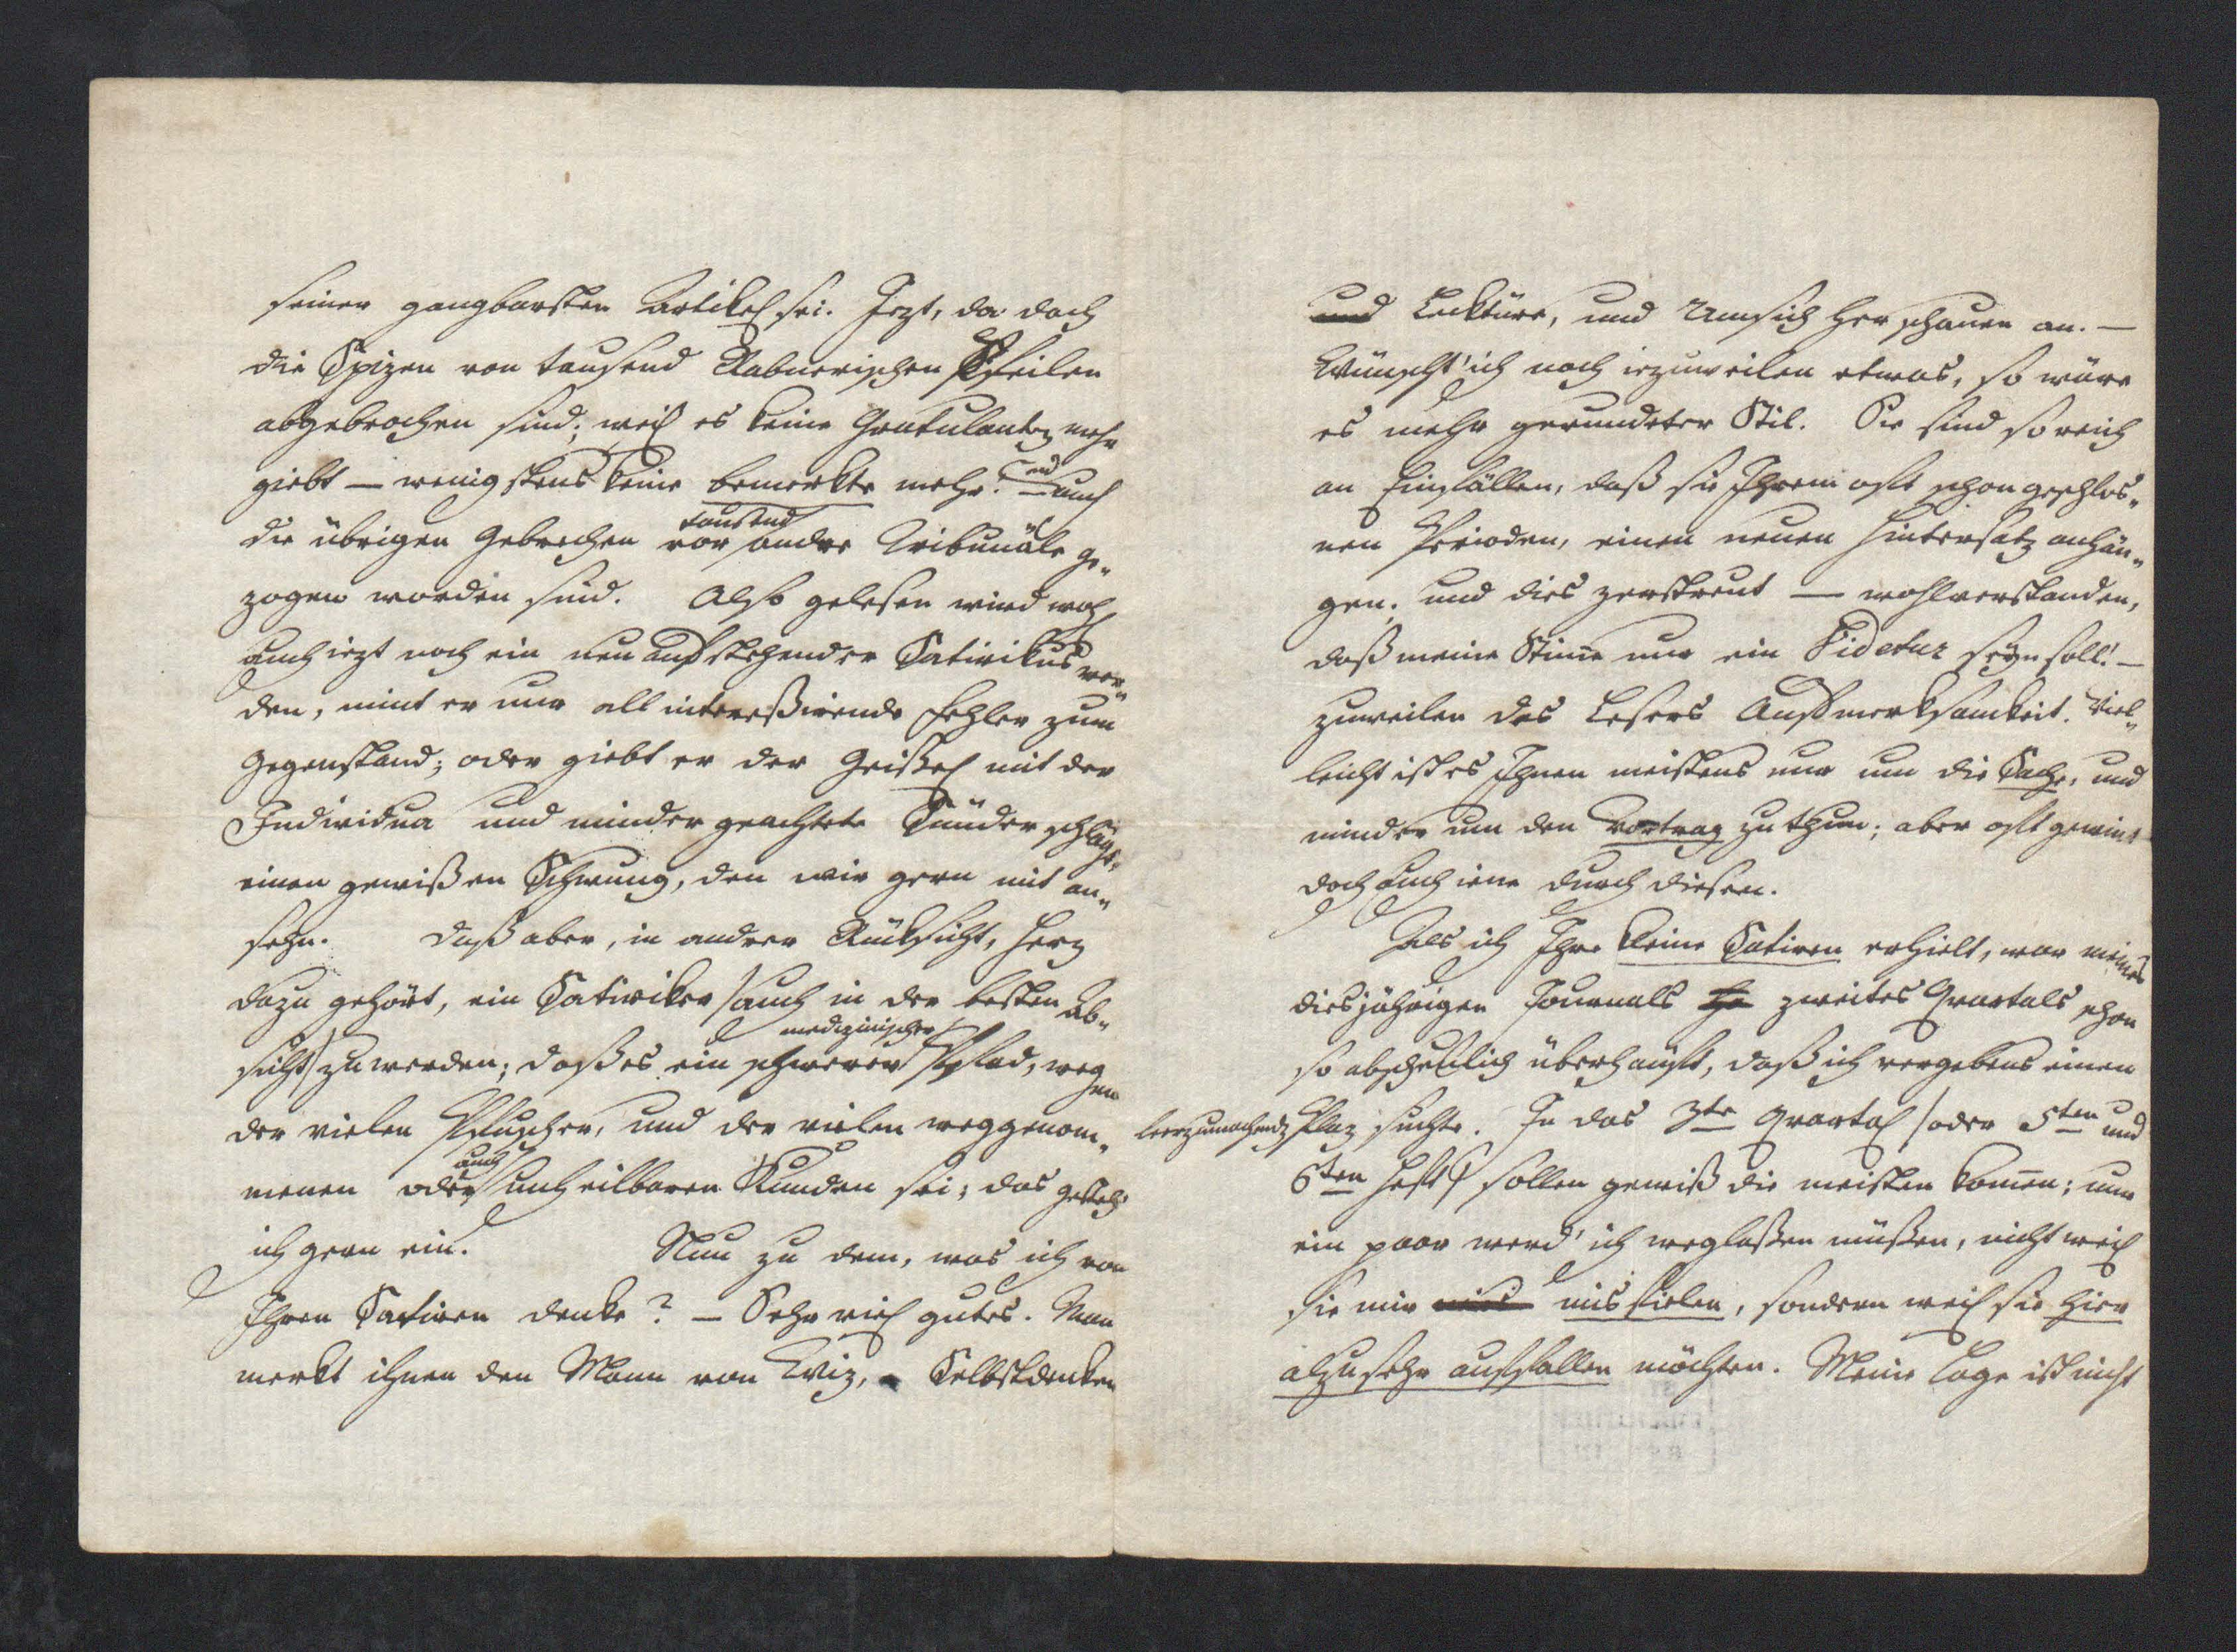 seiner gangbarsten Artikel sei. Jezt, da doch
die Spizen von tausend Rabnerischen Pfeilen
abgebrochen sind; weil es keine Gratulanten mehr
giebt — wenigstens keine bemerkte mehr: und auch
die übrigen Gebrechen vor tausend andre Tribunäle ge„
zogen worden sind. Also gelesen wird wohl
auch iezt noch ein neu aufstehender Satirikus wer„
den, nimt er nur all interessirende Fehler zum
Gegenstand; oder giebt er der Geißel mit der
Individua und minder geachtete Sünder schlägt„
einen gewißen Schwung, den wir gern mit an„
sehn. Daß aber, in andrer Rüksicht, Herz
dazu gehört, ein Satiriker /auch in der besten Ab„
sicht/ zu werden; daß es ein schwerer medizinischer Pfad, wegen
der vielen Pfuscher, und der vielen weggenom„
menen oder auch unheilbaren Kunden sei; das gesteh'
ich gern ein. Nun zu dem, was ich von
Ihren Satiren denke? — Sehr viel gutes. Man
merkt ihnen den Mann von Wiz, Selbstdenken
und Lecktüre, und Umsich her schauen an. —
Wünscht' ich noch iezuweilen etwas, so wäre
es mehr gerundeter Stil. Sie sind so reich
an Einfällen, daß sie Ihrem oft schon geschlos„
nen Perioden, einen neuen Hintersatz anhän„
gen; und dies zerstreut — wohlverstanden,
daß meine Stimme nur ein Videtur seyn soll! —
zuweilen des Lesers Aufmerksamkeit. Viel„
leicht ist es Ihnen meistens nur um die Sache, und
minder um den Vortrag zu thun; aber oft gewint
doch auch iene durch diesen.
Als ich Ihre kleine Satiren erhielt, war meines
diesjährigen Journals zweites Quartals schon
so abscheulich überhäuft, daß ich vergebens einen
leerzumachenden Plaz suchte. In das 3te Quartal /oder 5ten und
6ten Heft/ sollen gewiß die meisten kommen; nur
ein paar werd' ich weglaßen müßen, nicht weil
sie mir misfielen, sondern weil sie hier
alzusehr auffallen möchten. Meine Lage ist nicht